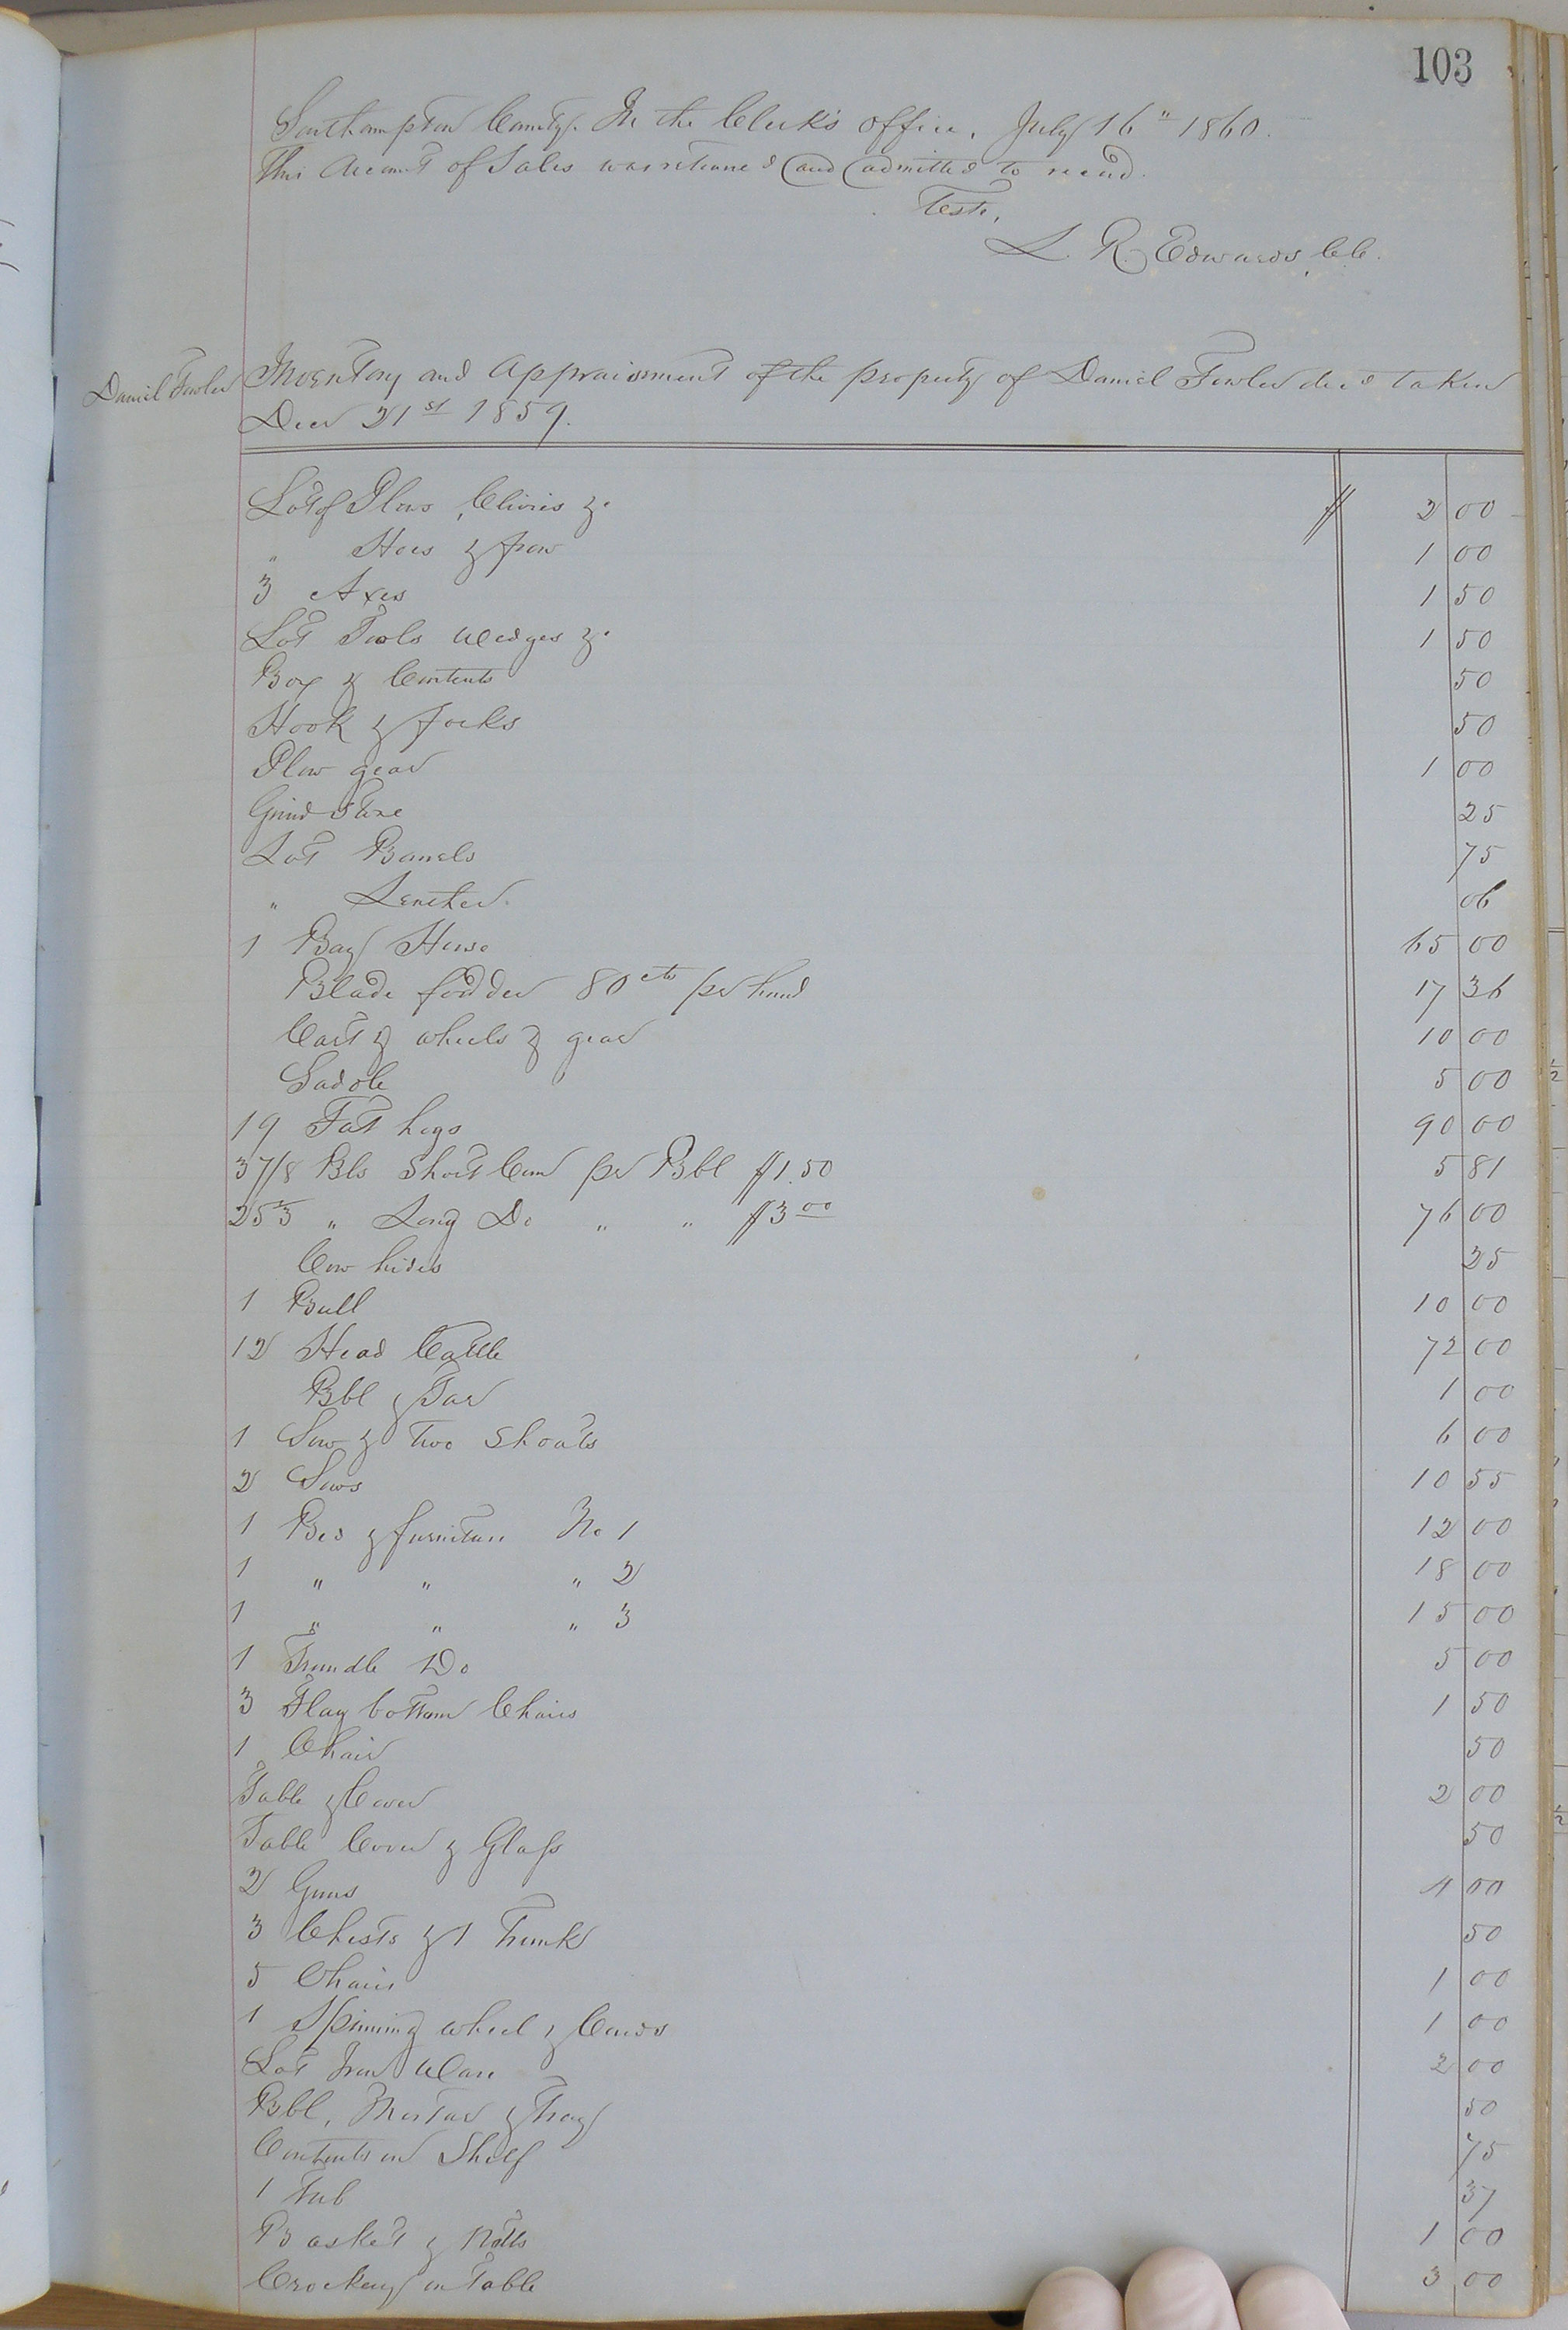 103
Southampton County. In the Clerk's office, July 16" 1860.
This Account of Sales was returned and admitted to record.
Teste,
L. R. Edwards, CC.
Daniel Fowler
Inventory and Appraisement of the property of Daniel Fowler decd taken
Decr 21st 1859.
Lot of Plows, Clivis &. $ 2 00
" Hoes & frow 1 00
3 Axes 1 50
Lot Tools Wedges &. 1 50
Box & Contents 50
Hook & forks 50
Plow gear 1 00
Grind Stone 25
Lot Barrels 75
" Leather. 06
1 Bay Horse 65 00
Blade fodder 80 cts per hund 17 36
Cart & wheels & gear 10 00
Saddle 5 00
19 Fat hogs 90 00
3 7/8 Bls Short Corn per Bbl $1.50 5 81
25 " Long Do " " $3 00 76 00
Cow hides 25
1 Bull 10 00
12 Head Cattle 72 00
Bbl & Tar 1 00
1 Sow & Two Shoats 6 00
2 Sows 10 55
1 Bed & furniture No 1 12 00
1 " " " 2 18 00
1 " " " 3 15 00
1 Trundle Do 5 00
3 Flag bottom Chairs 1 50
1 Chair 50
Table & Cover 2 00
Table Cover & Glass 50
2 Guns 4 00
3 Chests & 1 Trunk 50
5 Chairs 1 00
1 Spinning wheel & Cards 1 00
Lot Iron Ware 2 00
Bbl, Mortar & Tray 50
Contents on Shelf 75
1 Tub 37
Basket & 1 00
Crockery on Table 3 00